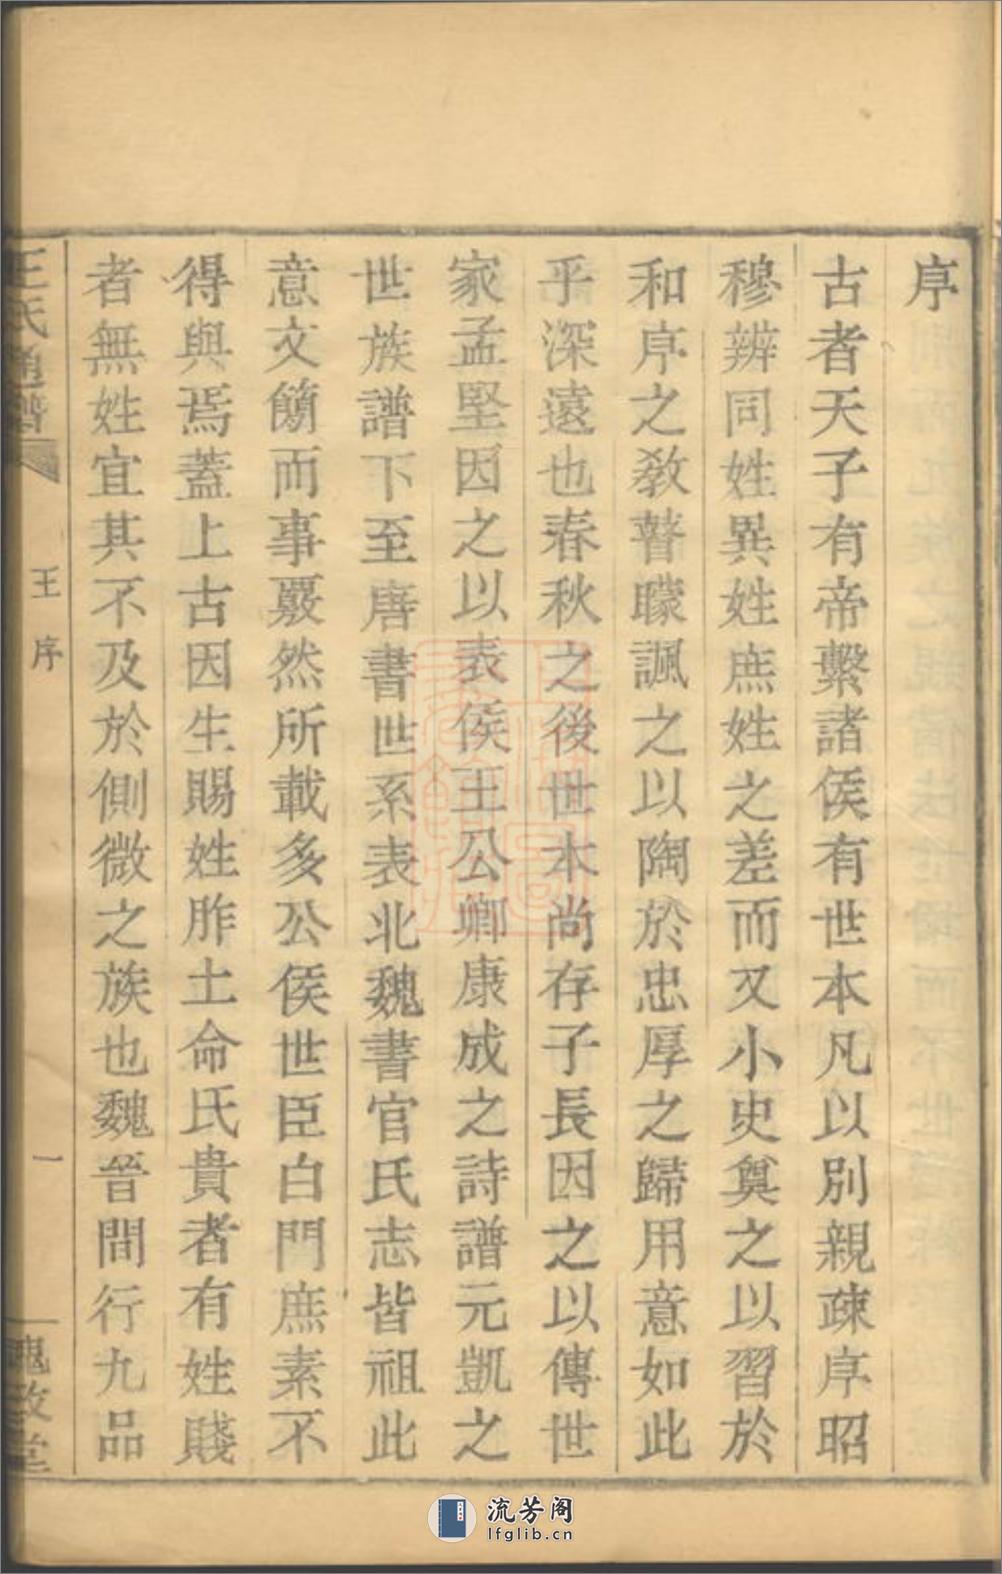 序
古者天子有帝繫諸侯有世本凡以別親疎序昭
穆辨同姓異姓庶姓之差而又小史奠之以習於
和序之敎瞽矇諷之以陶於忠厚之歸用意如此
乎深遠也春秋之後世本尚存子長因之以傳世
家孟堅因之以表侯王公卿康成之詩譜元凱之
世族譜下至唐書世系表北魏書官氏志皆祖此
意文簡而事覈然所載多公侯世臣白門庶素不
得與焉蓋上古因生賜姓胙土命氏貴者有姓賤
者無姓宜其不及於側微之族也魏晉間行九品
王氏通譜
王序
一
槐政堂
流芳阁
lfglib.cn